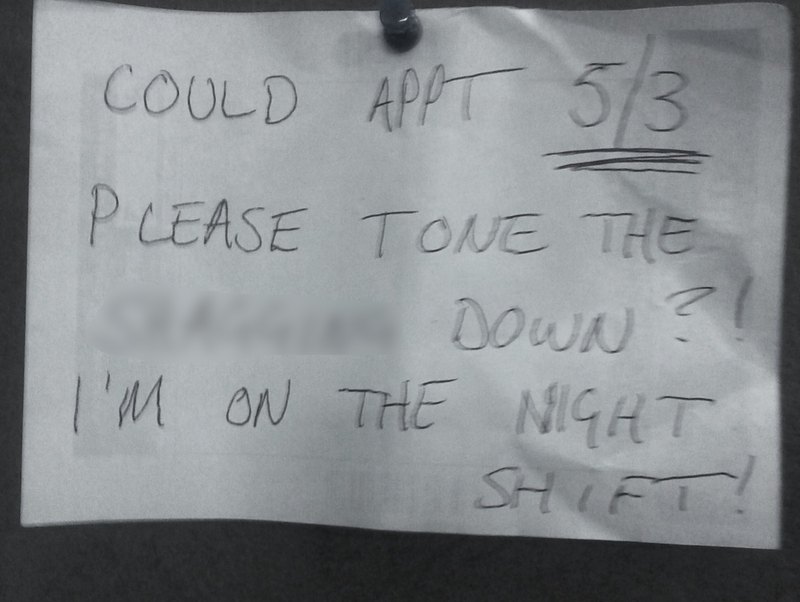 COULD APPT 5/3
PLEASE TONE THE
DOWN?!
I'M ON THE NIGHT
SHIFT!